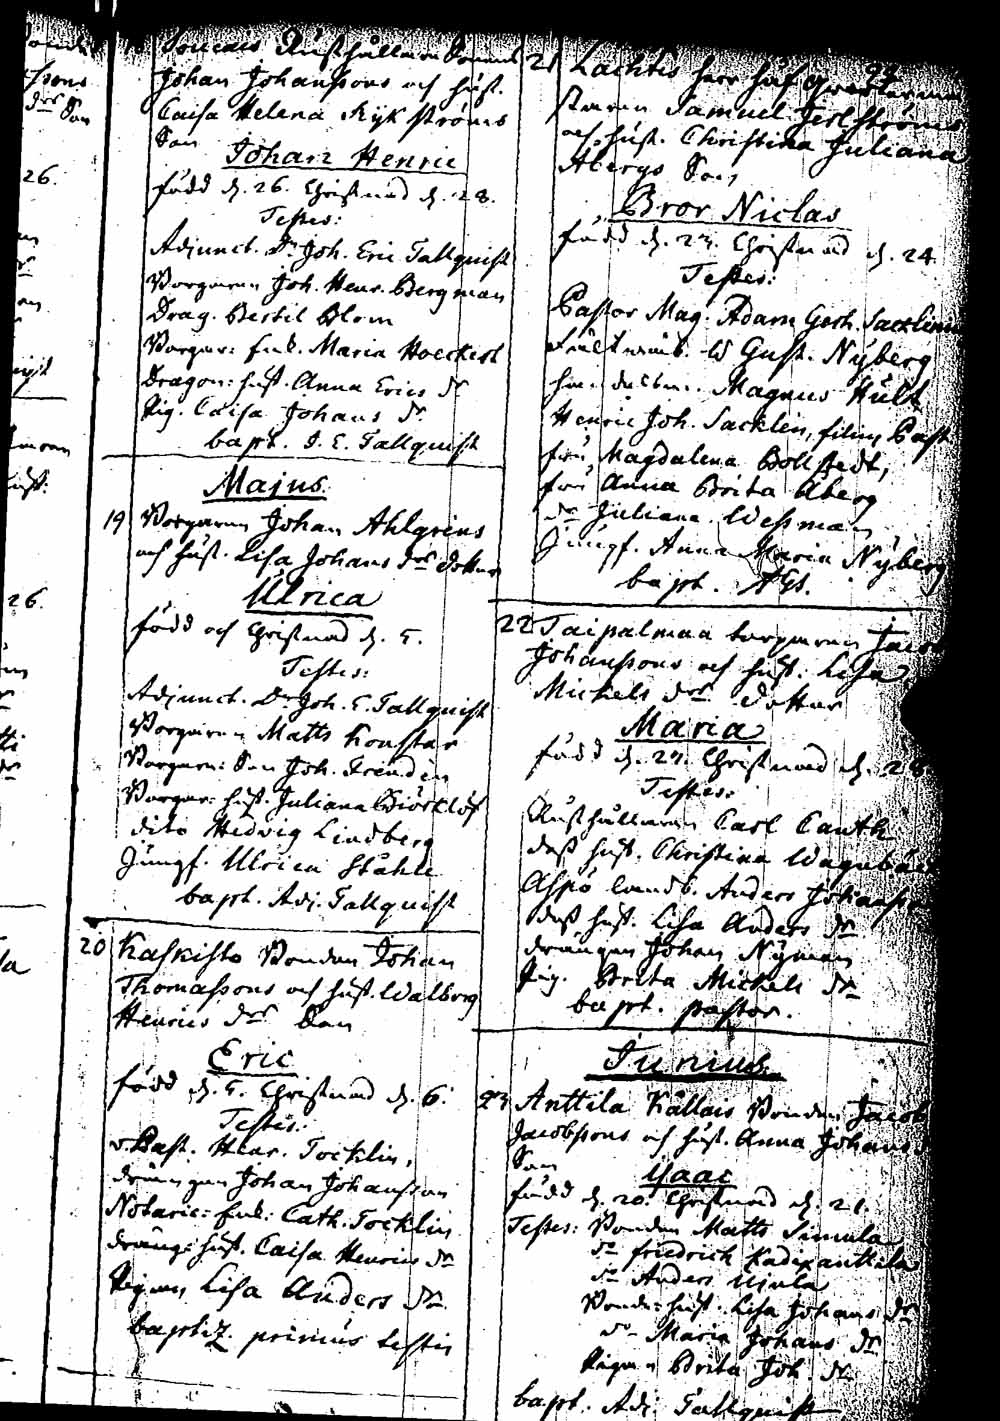 Johan Johanssons och hust.
Caisa Helena Rykströms
Son
Johan Henric
född d. 26. Christnad d. 28.
Testes:
Adjunct. Dr Joh. Eric Tallquist
Borgaren Joh. Henr. Bergman
Drag. Bertil Blom
Borgar: enk. Maria Hoeckert
Dragon: hust. Anna Erics dr
Pig. Caisa Johans dr
bapt. J. E. Tallquist
Majus.
19 Borgaren Johan Ahlgrens
och hust. Lisa Johans drs dotter
Ulrica
född och Christnad d. 5.
Testes:
Adjunct. Dr Joh. E. Tallquist
Borgaren Matts Konstar
Borgare: Son Joh. Frendén
Borgar: hust. Juliana Biörklöf
dito Hedvig Lindberg
Jungf. Ulrica Ståhle
bapt. Adj. Tallquist
20 Kaskisto Bonden Johan
Thomassons och hust. Walborg
Henrics drs Son
Eric
född d. 5. Christnad d. 6.
Testes:
v. Past. Henr. Tocklin,
drängen Johan Johansson
Notarie: enk: Cath. Tocklin
dräng: hust. Caisa Henrics dr
Pigan Lisa Anders dr.
baptiz. primus testis
94
21 Lachtis
Samuel
och hust. Christina Juliana
Åbergs Son
Bror Niclas
född d. 23. Christnad d. 24.
Testes:
Pastor Mag. Adam Gerh. Sacklinius
Gust. Nyberg
Magnus Hult
Henric Joh. Sacklén, filius Past
fru Magdalena Bollstedt,
fru Anna Brita Åberg
dr Juliana Wessman
Jungf. Anna Maria Nyberg
bapt. AGS.
22 Taipalmaa torparen Jacob
Johanssons och hust. Lisa
Michels drs dotter
Maria
född d. 27. Christnad d. 28
Testes:
Rusthållaren Carl Cauth
dess hust. Christina
Aspö landb. Anders Johansson
dess hust. Lisa Anders dr
drängen Johan Nyman
Pig. Brita Michels dr
bapt. pastor.
Junius.
23 Anttila Kållais Bonden Jacob
Jacobssons och hust. Anna Johans
Son
Isaac
född d. 20. Christnad d. 21.
Testes: Bonden Matts Simula
dr friedrich Kadixanttila
dr Anders Ujula
Bonde: hust. Lisa Johans dr
dr Maria Johans dr
Pigan Brita Joh. dr
bapt. Adj. Tallquist